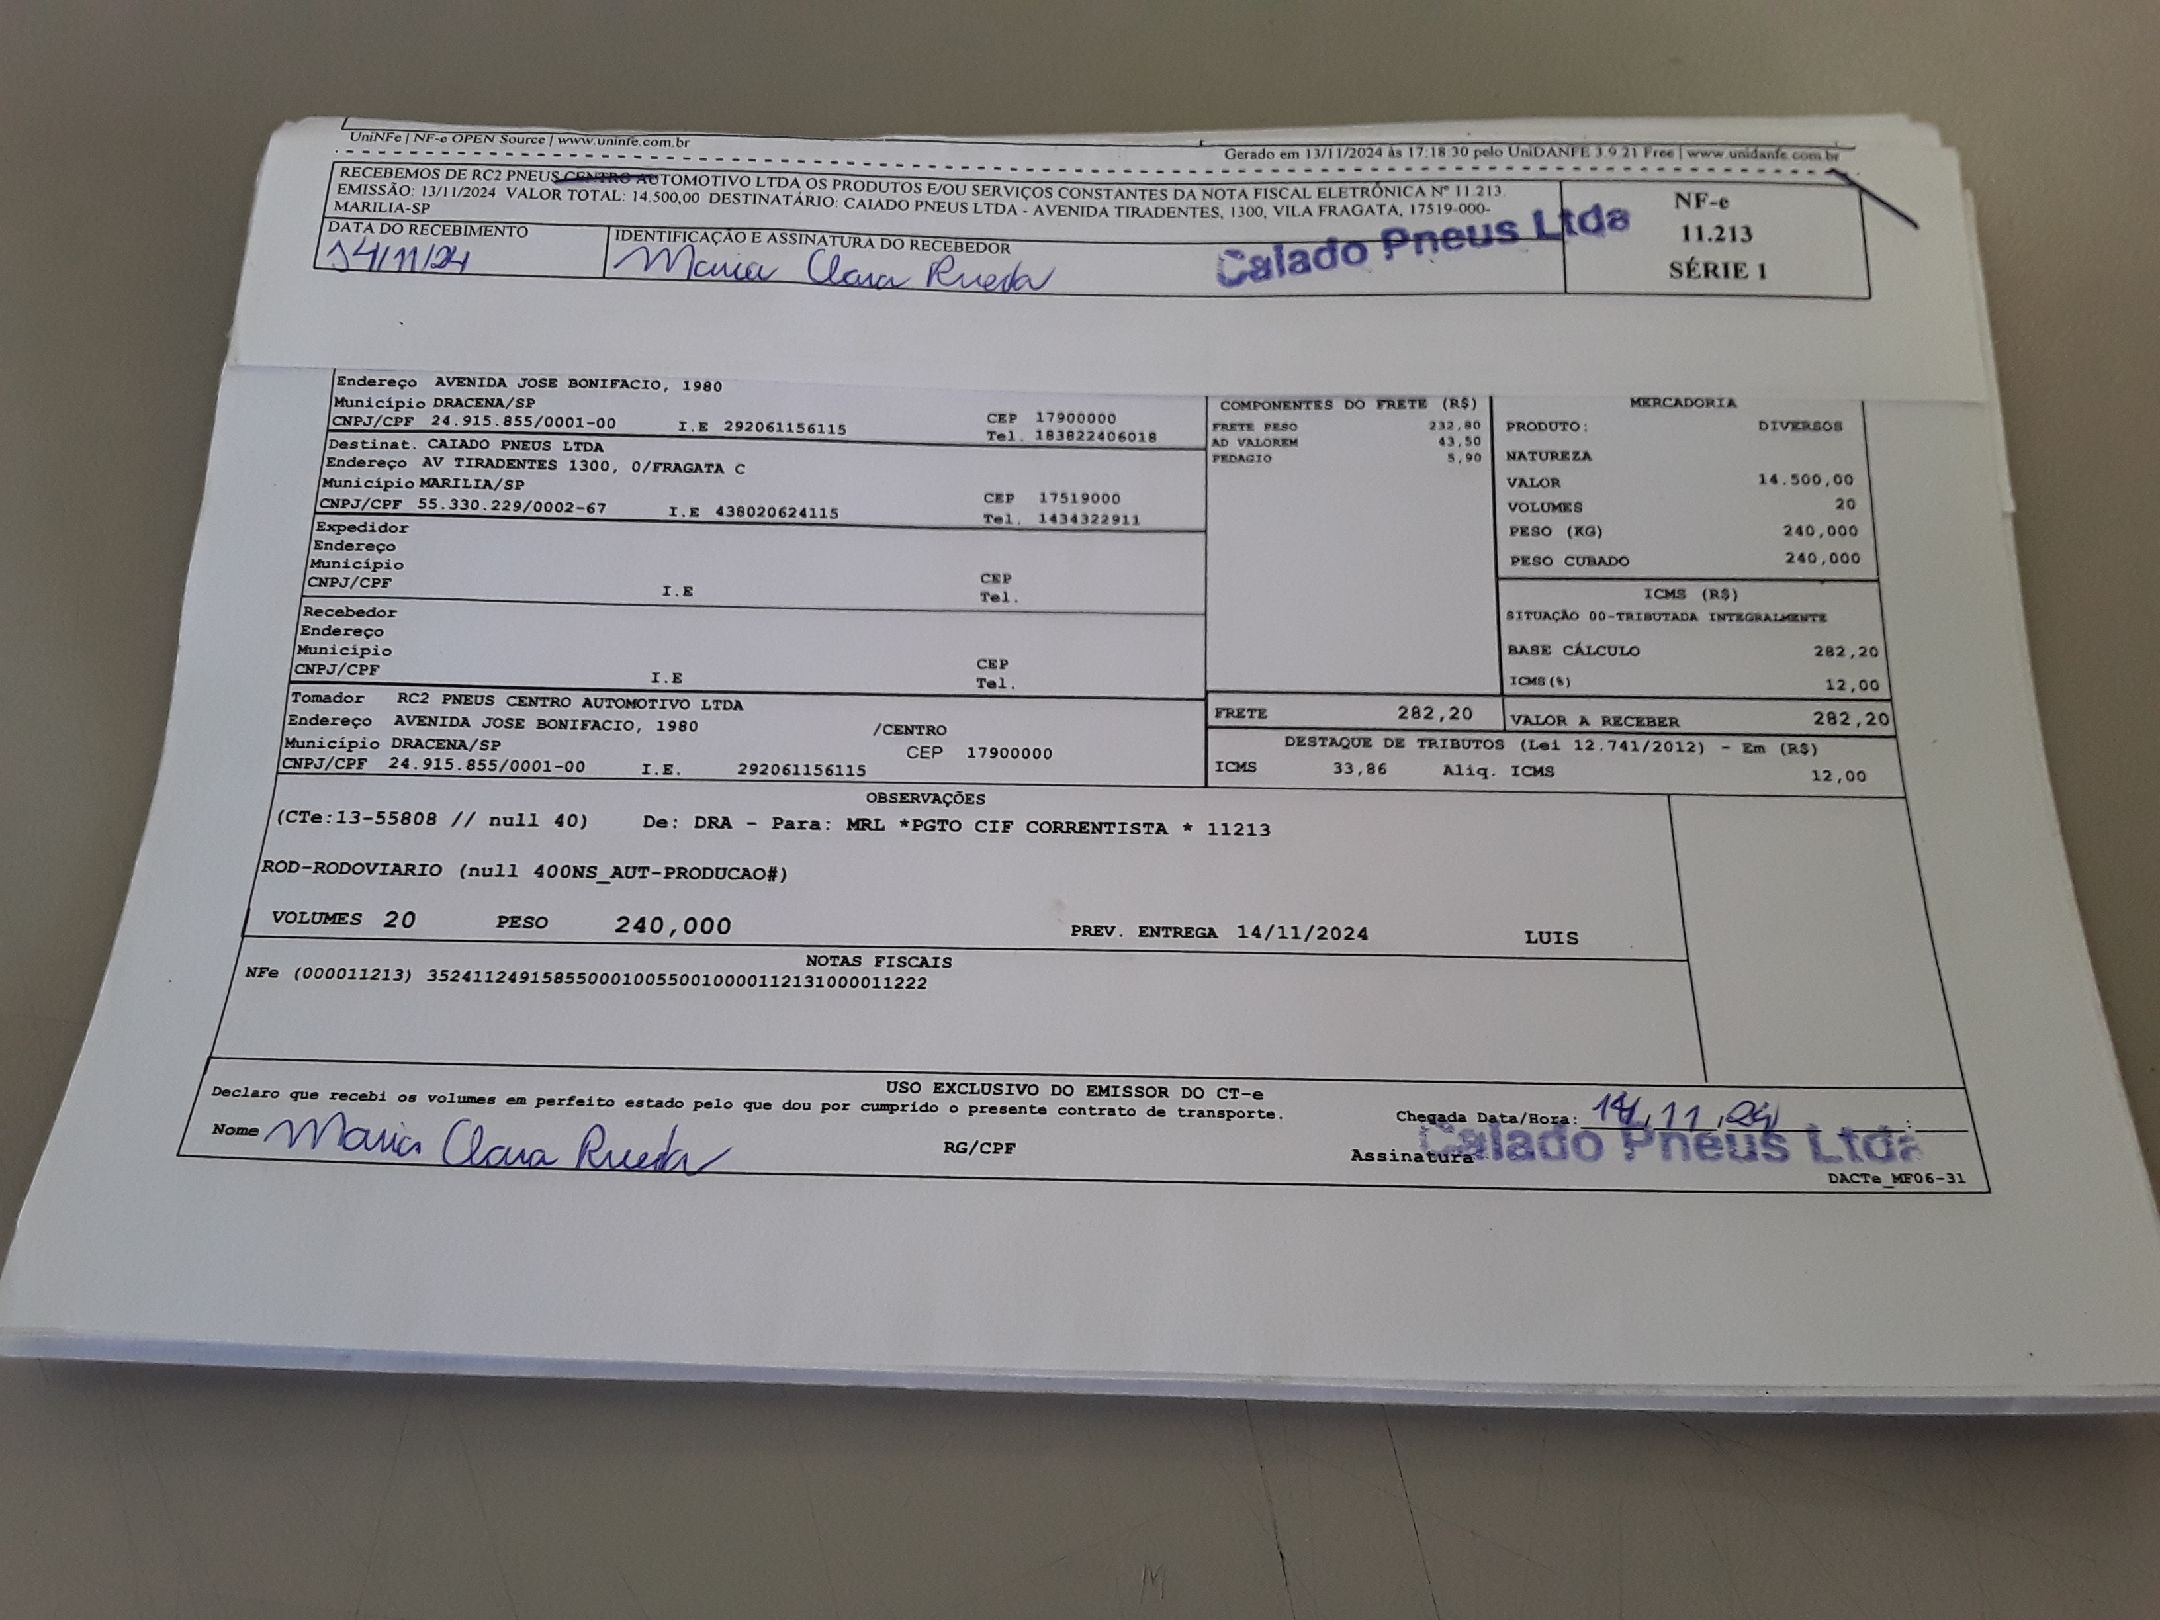 UniNFe | NF-e OPEN Source | www.uninfe.com.br
Gerado em 13/11/2024 às 17:18:30 pelo UniDANFE 3.9.21 Free | www.unidanfe.com.br
RECEBEMOS DE RC2 PNEUS CENTRO AUTOMOTIVO LTDA OS PRODUTOS E/OU SERVIÇOS CONSTANTES DA NOTA FISCAL ELETRÔNICA Nº 11.213.
EMISSÃO: 13/11/2024 VALOR TOTAL: 14.500,00 DESTINATÁRIO: CAIADO PNEUS LTDA - AVENIDA TIRADENTES, 1300, VILA FRAGATA, 17519-000-
MARILIA-SP
NF-e
11.213
SÉRIE 1
DATA DO RECEBIMENTO
14/11/24
IDENTIFICAÇÃO E ASSINATURA DO RECEBEDOR
Maria Clara Rueda
Caiado Pneus Ltda
Endereço AVENIDA JOSE BONIFACIO, 1980
Município DRACENA/SP
CEP 17900000
CNPJ/CPF 24.915.855/0001-00 I.E 292061156115
Tel. 183822406018
Destinat. CAIADO PNEUS LTDA
Endereço AV TIRADENTES 1300, 0/FRAGATA C
Município MARILIA/SP
CEP 17519000
CNPJ/CPF 55.330.229/0002-67 I.E 438020624115
Tel. 1434322911
Expedidor
Endereço
Município
CEP
CNPJ/CPF I.E
Tel.
Recebedor
Endereço
Município
CEP
CNPJ/CPF I.E
Tel.
Tomador RC2 PNEUS CENTRO AUTOMOTIVO LTDA
Endereço AVENIDA JOSE BONIFACIO, 1980 /CENTRO
Município DRACENA/SP CEP 17900000
CNPJ/CPF 24.915.855/0001-00 I.E. 292061156115
COMPONENTES DO FRETE (R$)
FRETE PESO 232,80
AD VALOREM 43,50
PEDAGIO 5,90
MERCADORIA
PRODUTO: DIVERSOS
NATUREZA
VALOR 14.500,00
VOLUMES 20
PESO (KG) 240,000
PESO CUBADO 240,000
ICMS (R$)
SITUAÇÃO 00-TRIBUTADA INTEGRALMENTE
BASE CÁLCULO 282,20
ICMS(%) 12,00
FRETE 282,20
VALOR A RECEBER 282,20
DESTAQUE DE TRIBUTOS (Lei 12.741/2012) - Em (R$)
ICMS 33,86 Aliq. ICMS 12,00
OBSERVAÇÕES
(CTe:13-55808 // null 40) De: DRA - Para: MRL *PGTO CIF CORRENTISTA * 11213
ROD-RODOVIARIO (null 400NS_AUT-PRODUCAO#)
VOLUMES 20 PESO 240,000 PREV. ENTREGA 14/11/2024 LUIS
NOTAS FISCAIS
NFe (000011213) 35241124915855000100550010000112131000011222
USO EXCLUSIVO DO EMISSOR DO CT-e
Declaro que recebi os volumes em perfeito estado pelo que dou por cumprido o presente contrato de transporte.
Chegada Data/Hora: 14/11/24 :
Nome Maria Clara Rueda RG/CPF Assinatura
Caiado Pneus Ltda
DACTe_MF06-31